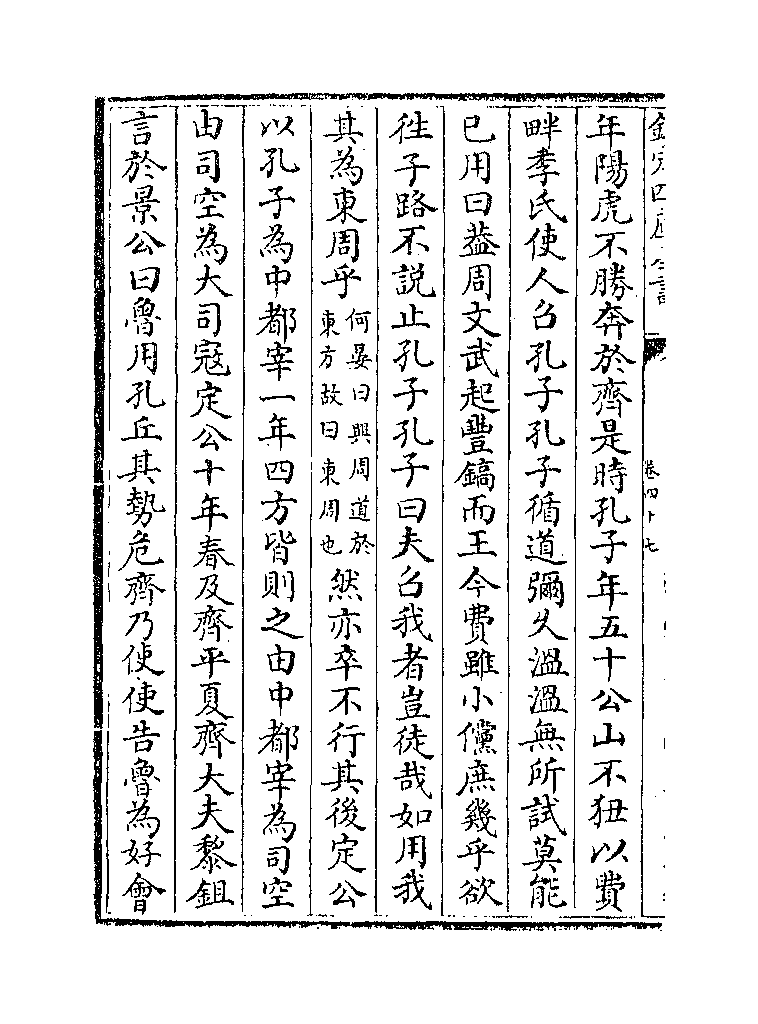 欽定四庫全書 卷四十七
年陽虎不勝奔於齊是時孔子年五十公山不狃以費
畔季氏使人召孔子孔子循道彌久溫溫無所試莫能
已用曰葢周文武起豐鎬而王今費雖小儻庶幾乎欲
徃子路不說止孔子孔子曰夫召我者豈徒哉如用我
其為東周乎何晏曰興周道於東方故曰東周也然亦卒不行其後定公
以孔子為中都宰一年四方皆則之由中都宰為司空
由司空為大司寇定公十年春及齊平夏齊大夫黎鉏
言於景公曰魯用孔丘其勢危齊乃使使告魯為好會